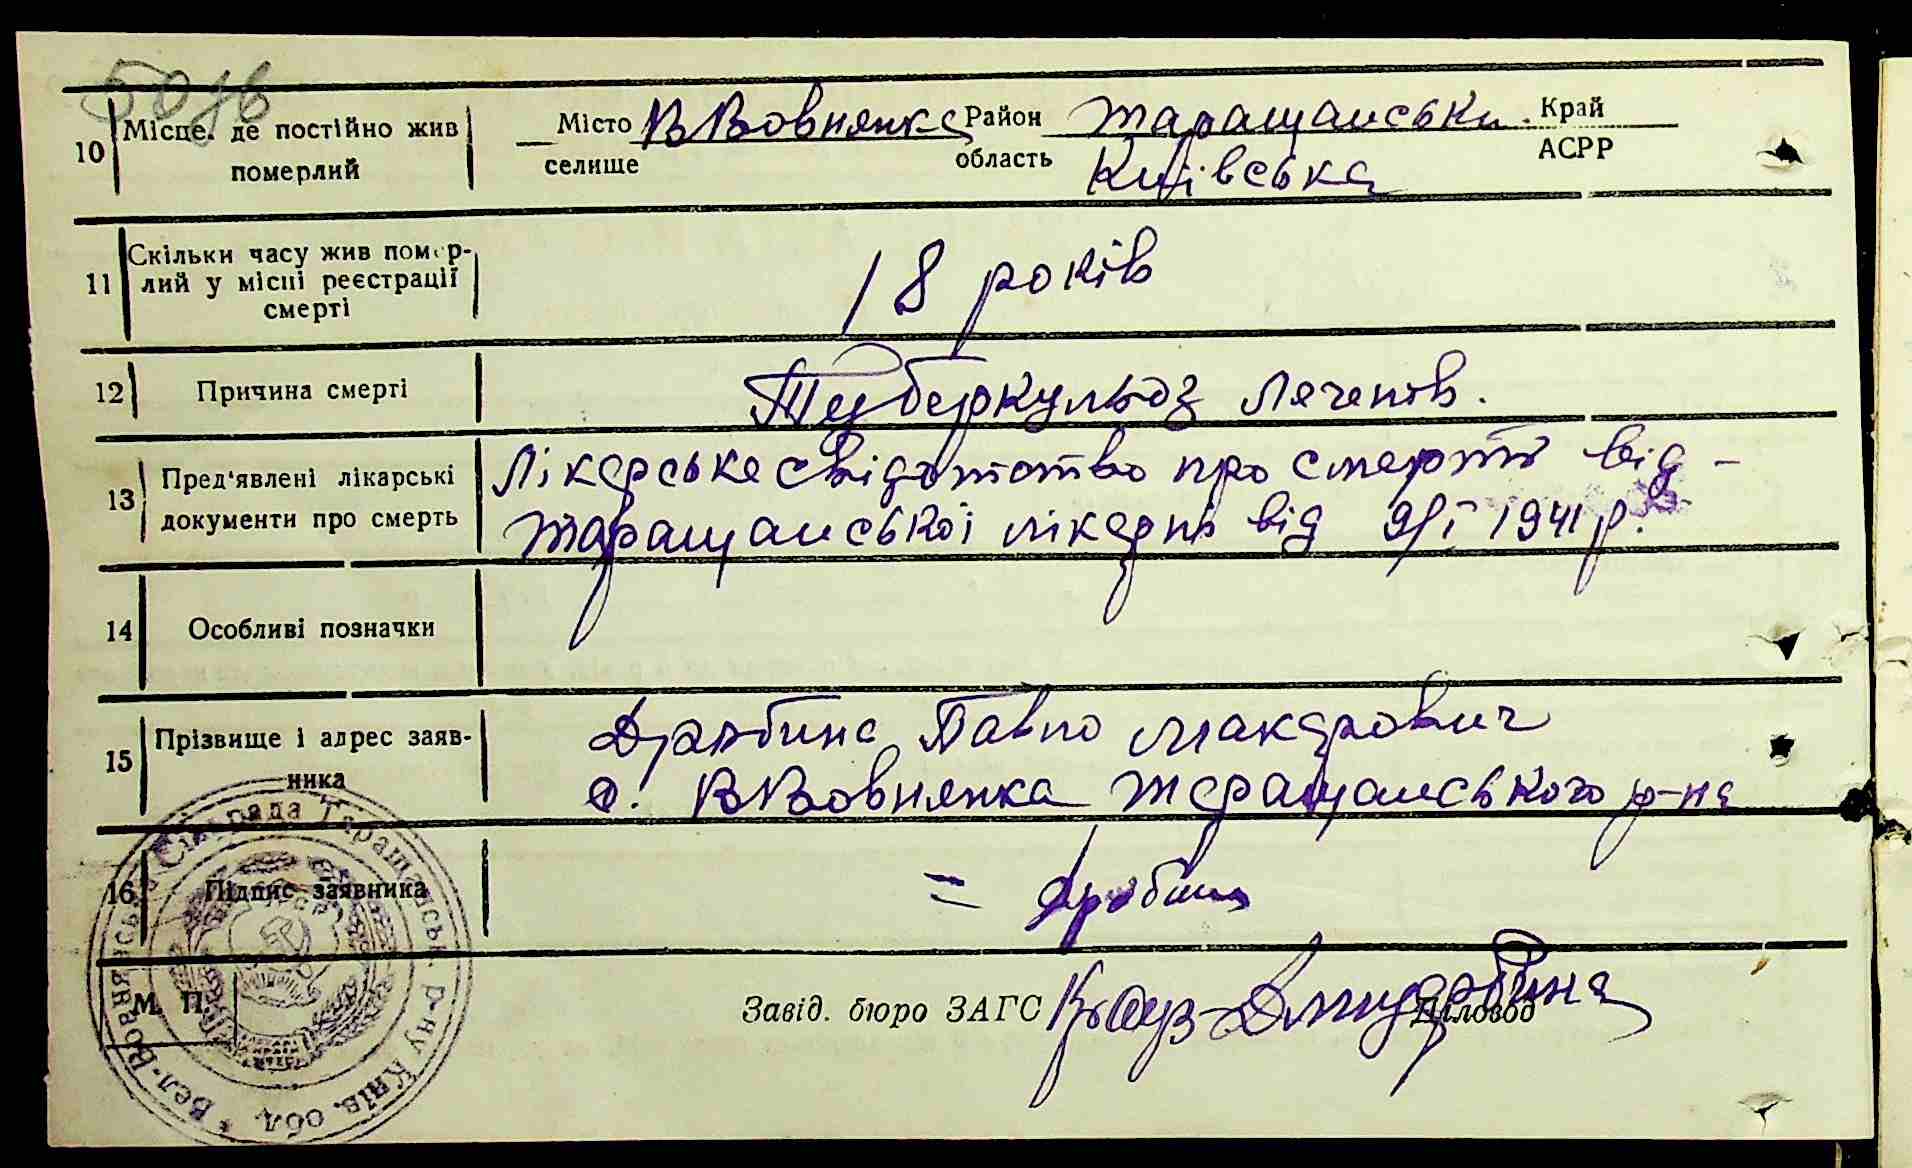 10 Місце, де постійно жив померлий
Місто селище ВВовнянка Район область Таращанськ. Київська Край АСРР
11 Скільки часу жив померлий у місці реєстрації смерті
18 років
12 Причина смерті
Туберкульоз легенів.
13 Пред'явлені лікарські документи про смерть
Лікарське свідотство про смерть від -
Таращанської лікарні від 9/I 1941 р.
14 Особливі позначки
15 Прізвище і адрес заявника
Павло Макарович
с. ВВовнянка Таращанського р-на
16 Підпис заявника
=
М. П.
Завід. бюро ЗАГС
Діловод
Вел-Вовнянська Сільрада Таращанськ. р-ну Київ. обл.